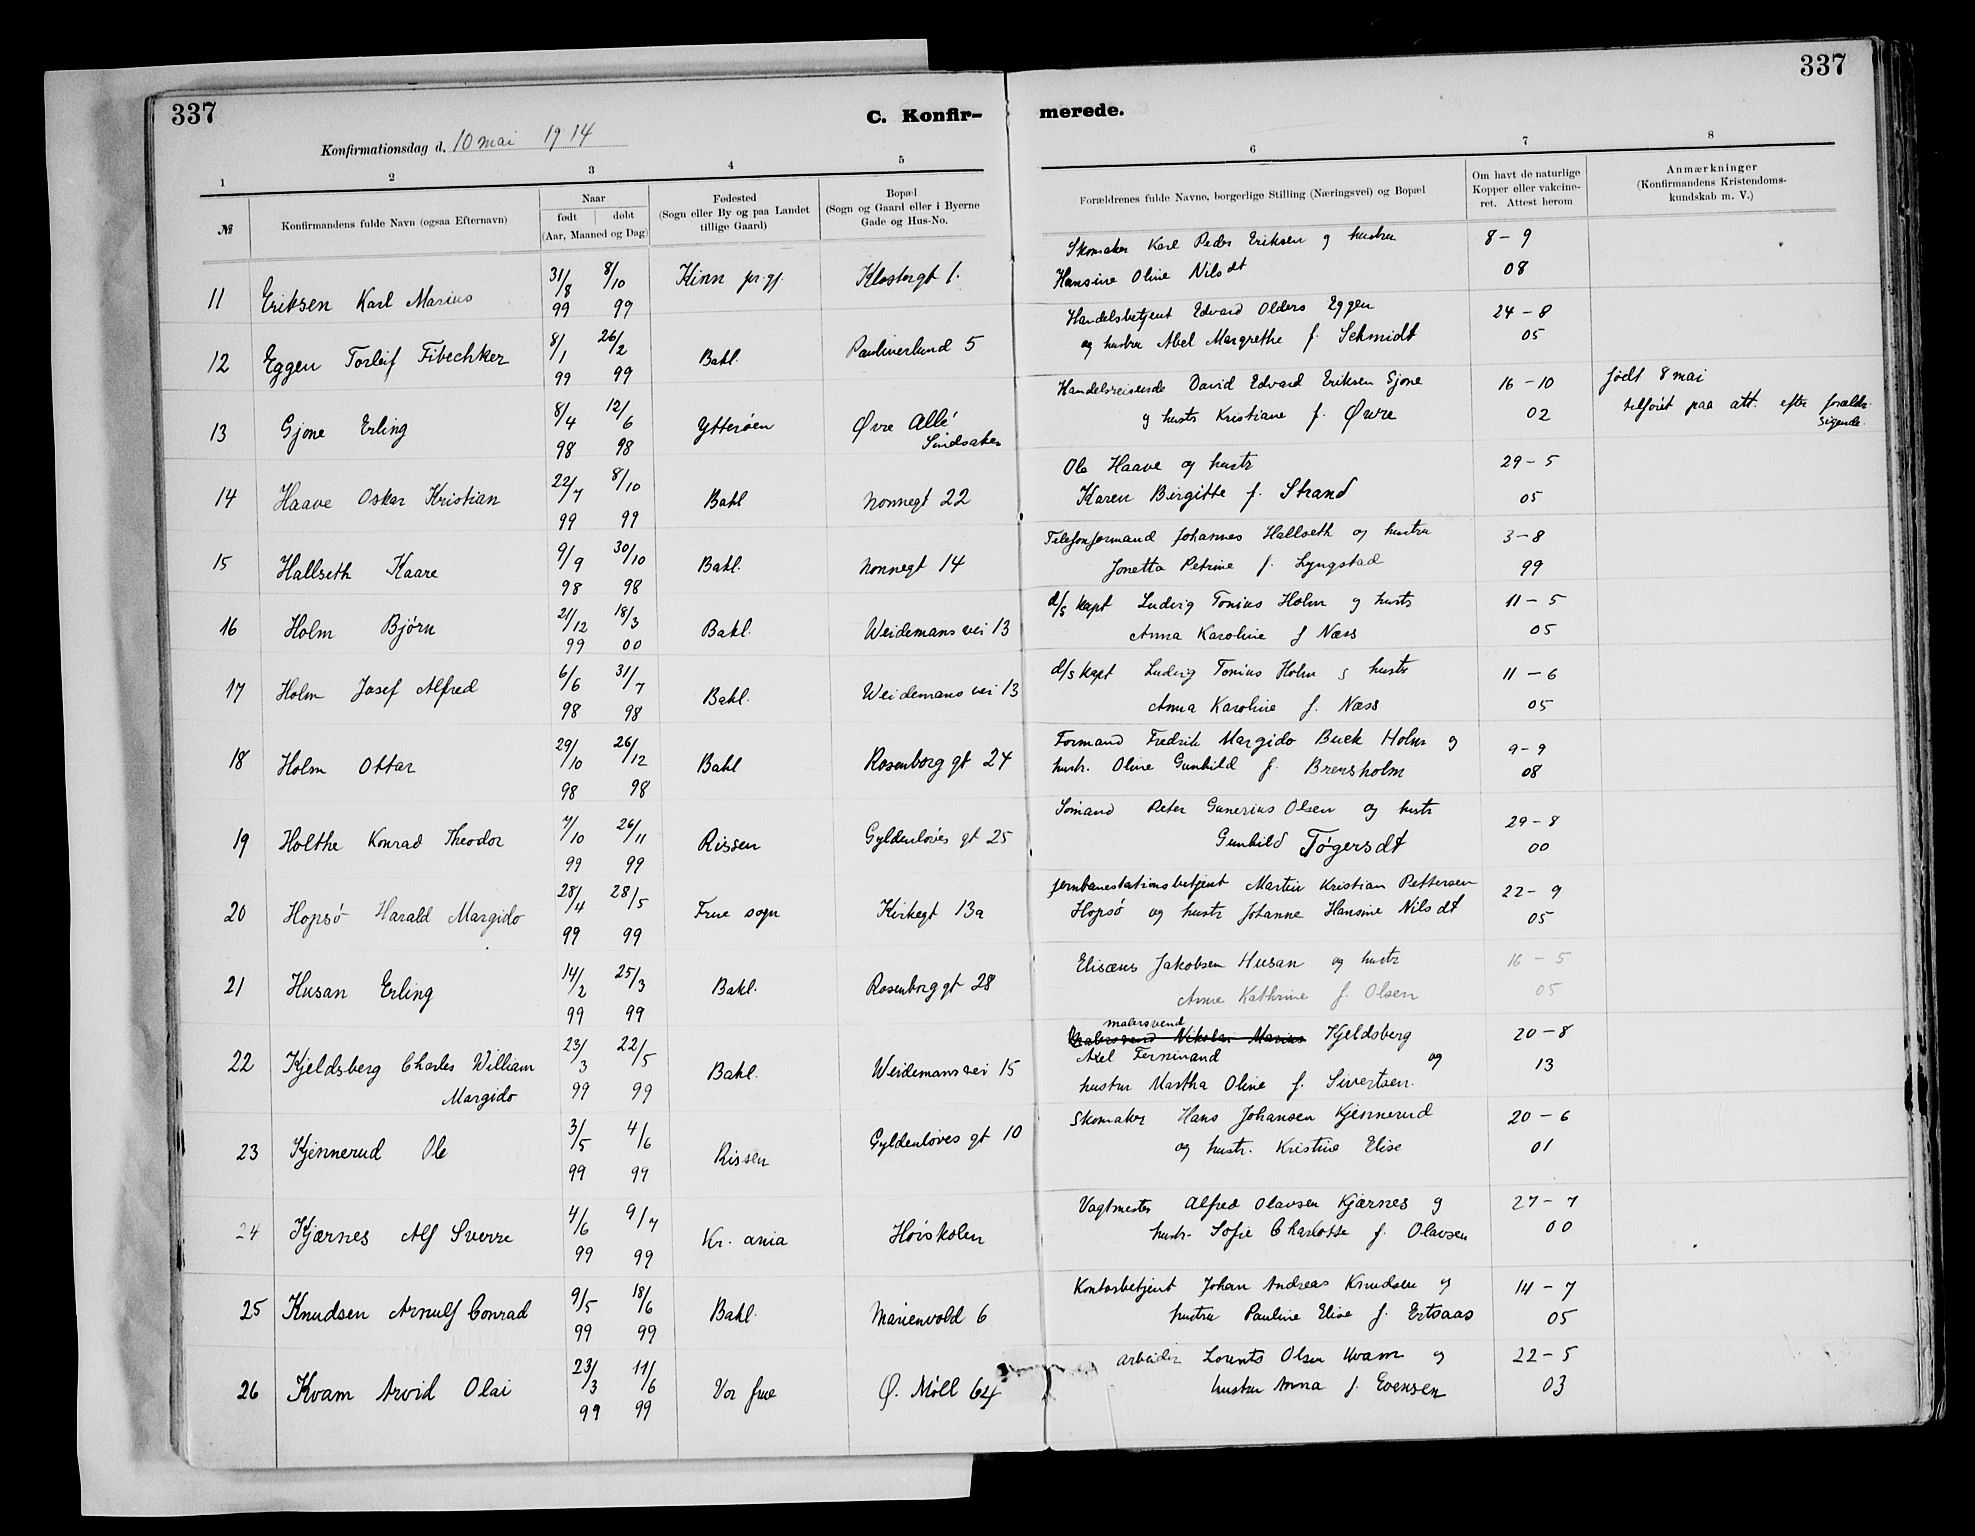 337
C. Konfir-
merede.
337
Konfirmationsdag d. 10 mai 1914
1 2 3 4 5 6 7 8
№ Konfirmandens fulde Navn (ogsaa Efternavn)
Naar
født døbt
(Aar, Maaned og Dag)
Fødested
(Sogn eller By og paa Landet
tillige Gaard)
Bopæl
(Sogn og Gaard eller i Byerne
Gade og Hus-No.
Forældrenes fulde Navne, borgerlige Stilling (Næringsvei) og Bopæl
Om havt de naturlige
Kopper eller vakcine-
ret. Attest herom
Anmærkninger
(Konfirmandens Kristendoms-
kundskab m. V.)
11 Eriksen Karl Marius 31/8 99 8/10 99 Kinn pr.gj. Klostergt 1.
Skomaker Karl Peder Eriksen og hustru
Hansine Oline Nilsdt
8-9
08
12 Eggen Torleif Fibechker 8/1 99 26/2 99 Bakl. Paulinerlund 5
Handelsbetjent Edvard Olders Eggen
og hustru Abel Margrethe f. Schmidt
24-8
05
13 Gjone Erling 8/4 98 12/6 98 Ytterøen Øvre Allé
Sindsaker
Handelsreisende David Edvard Eriksen Gjone
og hustr Kristiane f. Øvre
16-10
02
født 8 mai
tilføiet paa att. efter forældr.
sigende.
14 Haave Oskar Kristian 22/7 99 8/10 99 Bakl Nonnegt 22
Ole Haave og hustr
Karen Birgitte f. Strand
29-5
05
15 Hallseth Kaare 9/9 98 30/10 98 Bakl. Nonnegt 14
Telefonformand Johannes Hallseth og hustru
Jonetta Petrine f. Lyngstad
3-8
99
16 Holm Bjørn 21/12 99 18/3 00 Bakl. Weidemans vei 13
d/s kapt Ludvig Tonius Holm og hustr
Anna Karoline f Næss
11-5
05
17 Holm Josef Alfred 6/6 98 31/7 98 Bakl. Weidemans vei 13
d/s kapt Ludvig Tonius Holm g hustr
Anna Karoline f. Næss
11-6
05
18 Holm Ottar 29/10 98 26/12 98 Bakl Rosenborg gt 24
Formand Fredrik Margido Buck Holm og
hustr. Oline Gunhild f. Brersholm
9-9
08
19 Holthe Konrad Theodor 7/10 99 26/11 99 Rissen Gyldenløves gt 25
Sømand Peter Gunerius Olsen og hustr
Gunhild Tøgersdt
29-8
00
20 Hopsø Harald Margido 28/4 99 28/5 99 Frue sogn Kirkegt 13a
Jernbanestationsbetjent Martin Kristian Pettersen
Hopsø og hustr Johanne Hansine Nilsdt
22-9
05
21 Husan Erling 14/2 99 25/3 99 Bakl. Rosenborg gt 28
Elisæus Jakobsen Husan og hustr
Anne Kathrine f. Olsen
16-5
05
22 Kjeldsberg Charles William
Margido 23/3 99 22/5 99 Bakl. Weidemansvei 15
malersvend
Malersvend Nikolai Marius Kjeldsberg
Axel Ferninand og
hustru Martha Oline f. Sivertsen.
20-8
13
23 Kjennerud Ole 3/5 99 4/6 99 Rissen Gyldenløves gt 10
Skomaker Hans Johansen Kjennerud
og hustr. Kristine Elise
20-6
01
24 Kjærnes Alf Sverre 4/6 99 9/7 99 Kr. ania Høiskolen
Vagtmester Alfred Olavsen Kjærnes g
hustr. Sofie Charlotte f. Olavsen
27-7
00
25 Knudsen Arnulf Conrad 9/5 99 18/6 99 Bakl. Marienvold 6
Kontorbetjent Johan Andreas Knudsen og
hustru Pauline Elise f. Ertsaas
14-7
05
26 Kvam Arvid Olai 23/3 99 11/6 99 Vor frue Ø. Møll 64
arbeider Lorents Olsen Kvam og
hustru Anna f. Evensen
22-5
03